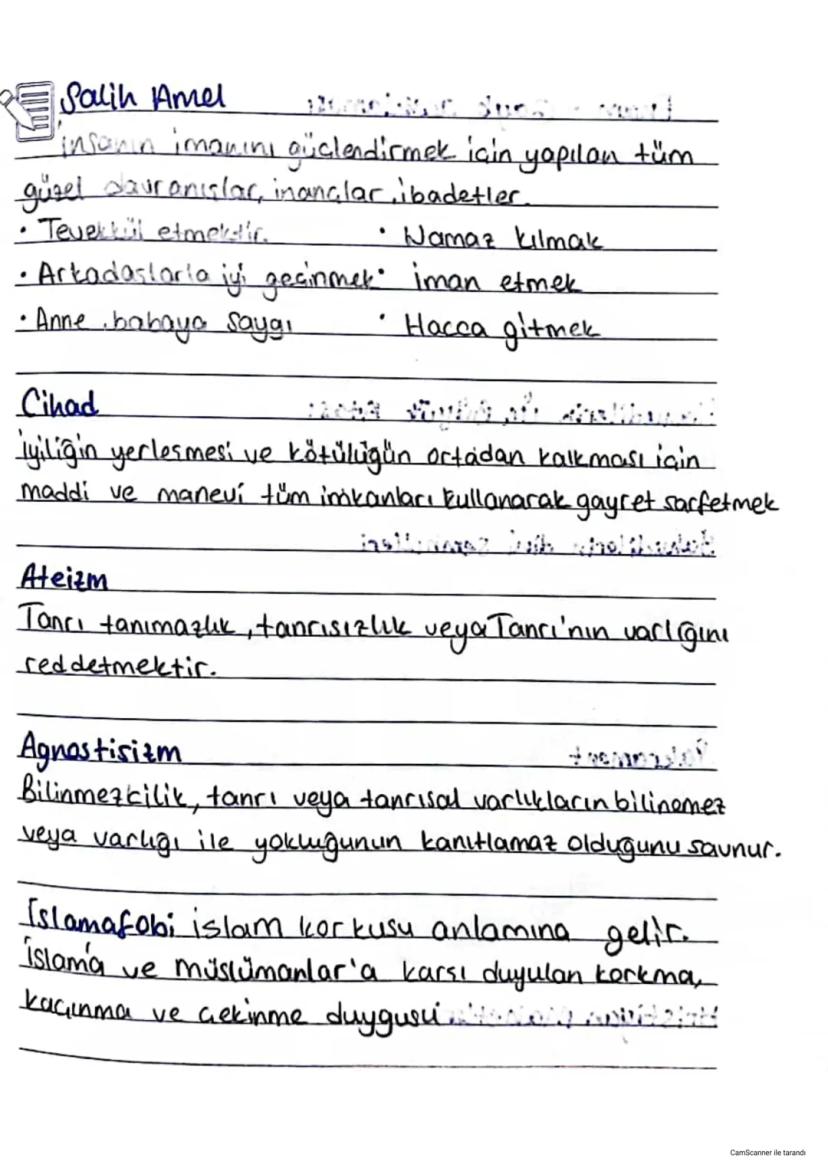 Salih Amel
insanın imanını güçlendirmek için yapılan tüm
güzel davranışlar, inançlar, ibadetler.
• Tevekkül etmektir.
• Namaz kılmak
• Arkadaşlarla iyi geçinmek
• iman etmek
• Anne, babaya saygı
• Hacca gitmek
Cihad
iyiliğin yerleşmesi ve kötülüğün ortadan kalkması için
maddi ve manevi tüm imkanları kullanarak gayret sarfetmek
Ateizm
Tanrı tanımazlık, tanrısızlık veya Tanrı'nın varlığını
reddetmektir.
Agnostisizm
Bilinmezcilik, tanrı veya tanrısal varlıkların bilinemez
veya varlığı ile yokluğunun kanıtlamaz olduğunu savunur.
İslamafobi islam korkusu anlamına gelir.
İslam'a ve müslümanlar'a karşı duyulan korkma,
kaçınma ve çekinme duygusu
CamScanner ile tarandı